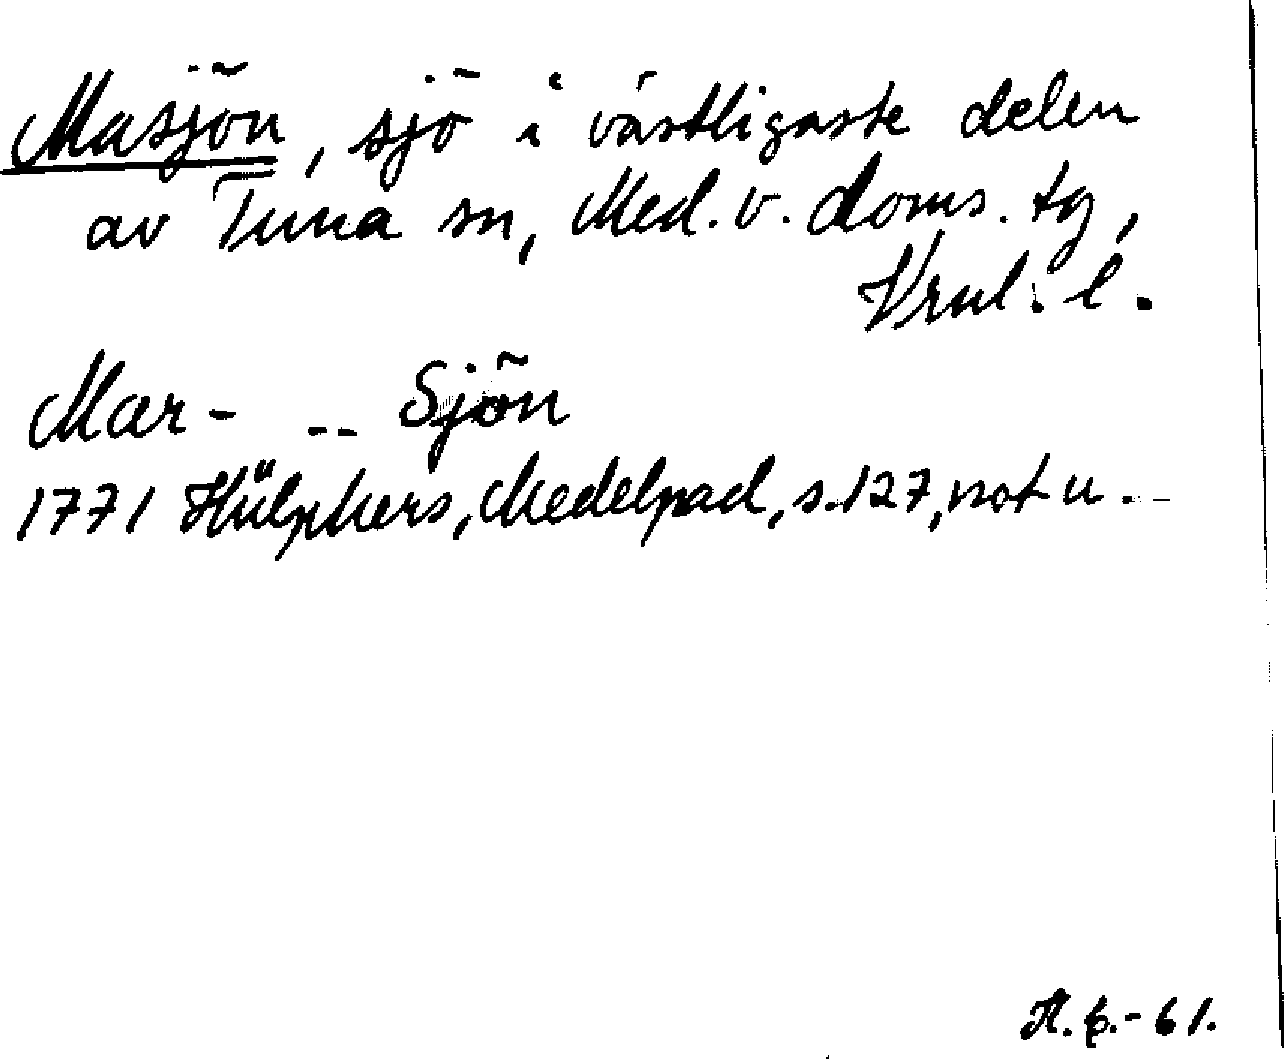 Masjön, sjö i västligaste delen
av Tuna sn, Med. v. doms. tg,
Vrnl. l.
Mar- -- Sjön
1771 Hülphers, Medelpad, s. 127, not u. -
H. -61.